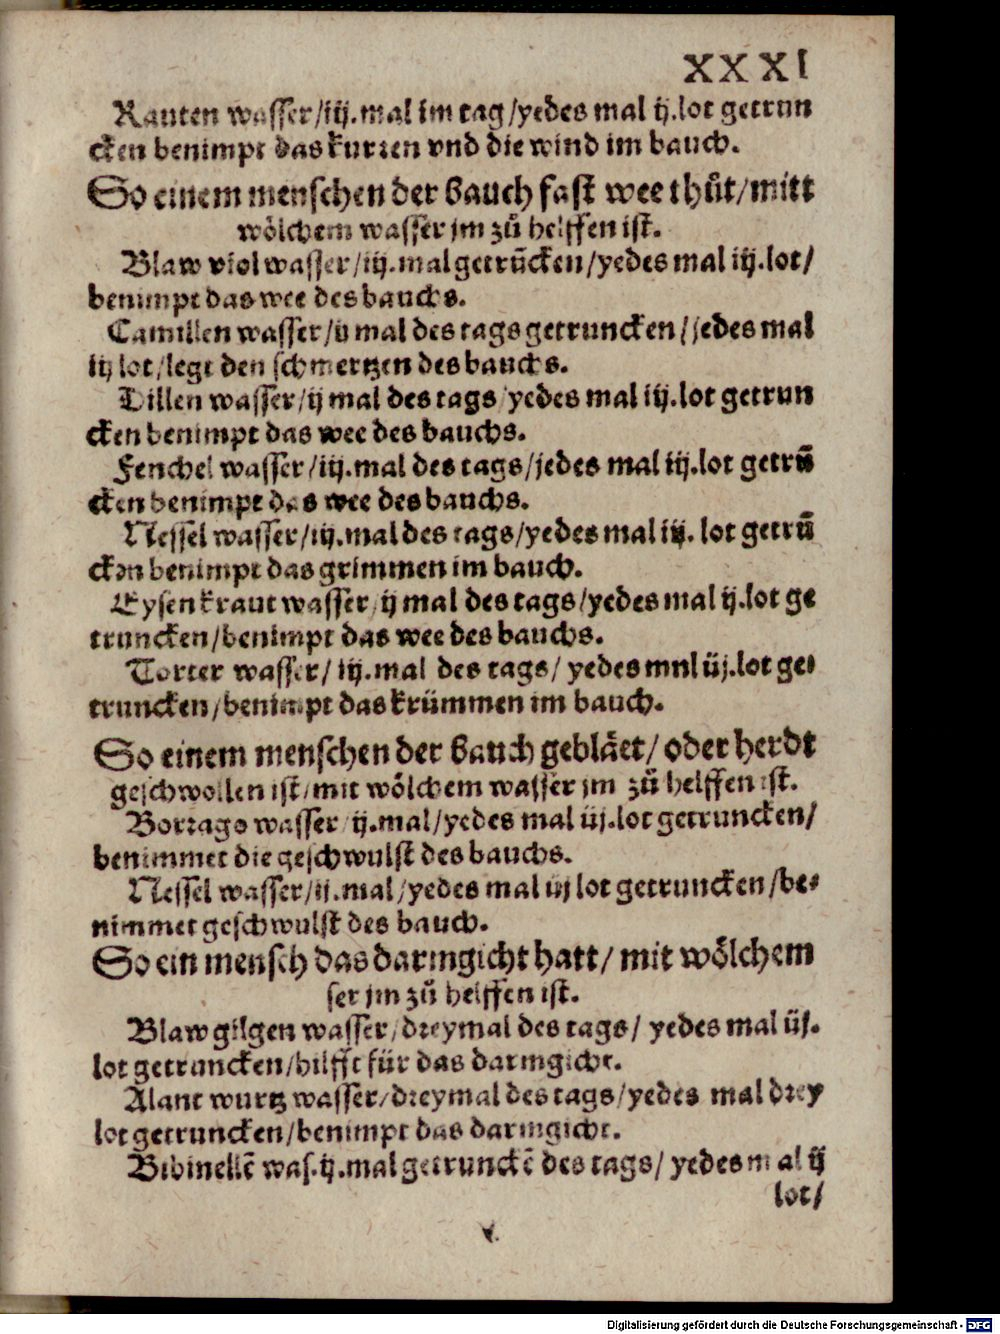 XXXI
Rauten wasser/iij.mal im tag/yedes mal ij.lot getrun
cken benimpt das kurren vnd die wind im bauch.
So einem menschen der bauch fast wee thůt/mitt
wölchem wasser jm zů helffen ist.
Blaw viol wasser/iij.mal getrũcken/yedes mal iij.lot/
benimpt das wee des bauchs.
Camillen wasser/ij mal des tags getruncken/jedes mal
iij lot/legt den schmertzen des bauchs.
Dillen wasser/ij mal des tags/yedes mal iij.lot getrun
cken benimpt das wee des bauchs.
Fenchel wasser/iij.mal des tags/jedes mal iij.lot getrũ
cken benimpt das wee des bauchs.
Nessel wasser/iij.mal des tags/yedes mal iij. lot getrũ
cken benimpt das grimmen im bauch.
Eysenkraut wasser/ij mal des tags/yedes mal ij.lot ge
truncken/benimpt das wee des bauchs.
Torter wasser/ iij.mal des tags/ yedes mnl iij.lot ge-
truncken/benimpt das krümmen im bauch.
So einem menschen der bauch gebläet/ oder herdt
geschwollen ist/mit wölchem wasser jm zů helffen ist.
Borrago wasser ij.mal/yedes mal iij.lot getruncken/
benimmet die geschwulst des bauchs.
Nessel wasser/ij.mal/yedes mal iij lot getruncken/be-
nimmet geschwulst des bauch.
So ein mensch das darmgicht hatt/ mit wölchem
ser jm zů helffen ist.
Blaw gilgen wasser/dreymal des tags/ yedes mal iij.
lot getruncken/hilfft für das darmgicht.
Alant wurtz wasser/dreymal des tags/yedes mal drey
lot getruncken/benimpt das darmgicht.
Bibinellẽ was.ij.mal getrunckẽ des tags/ yedes mal ij
lot/
Digitalisierung gefördert durch die Deutsche Forschungsgemeinschaft - DFG